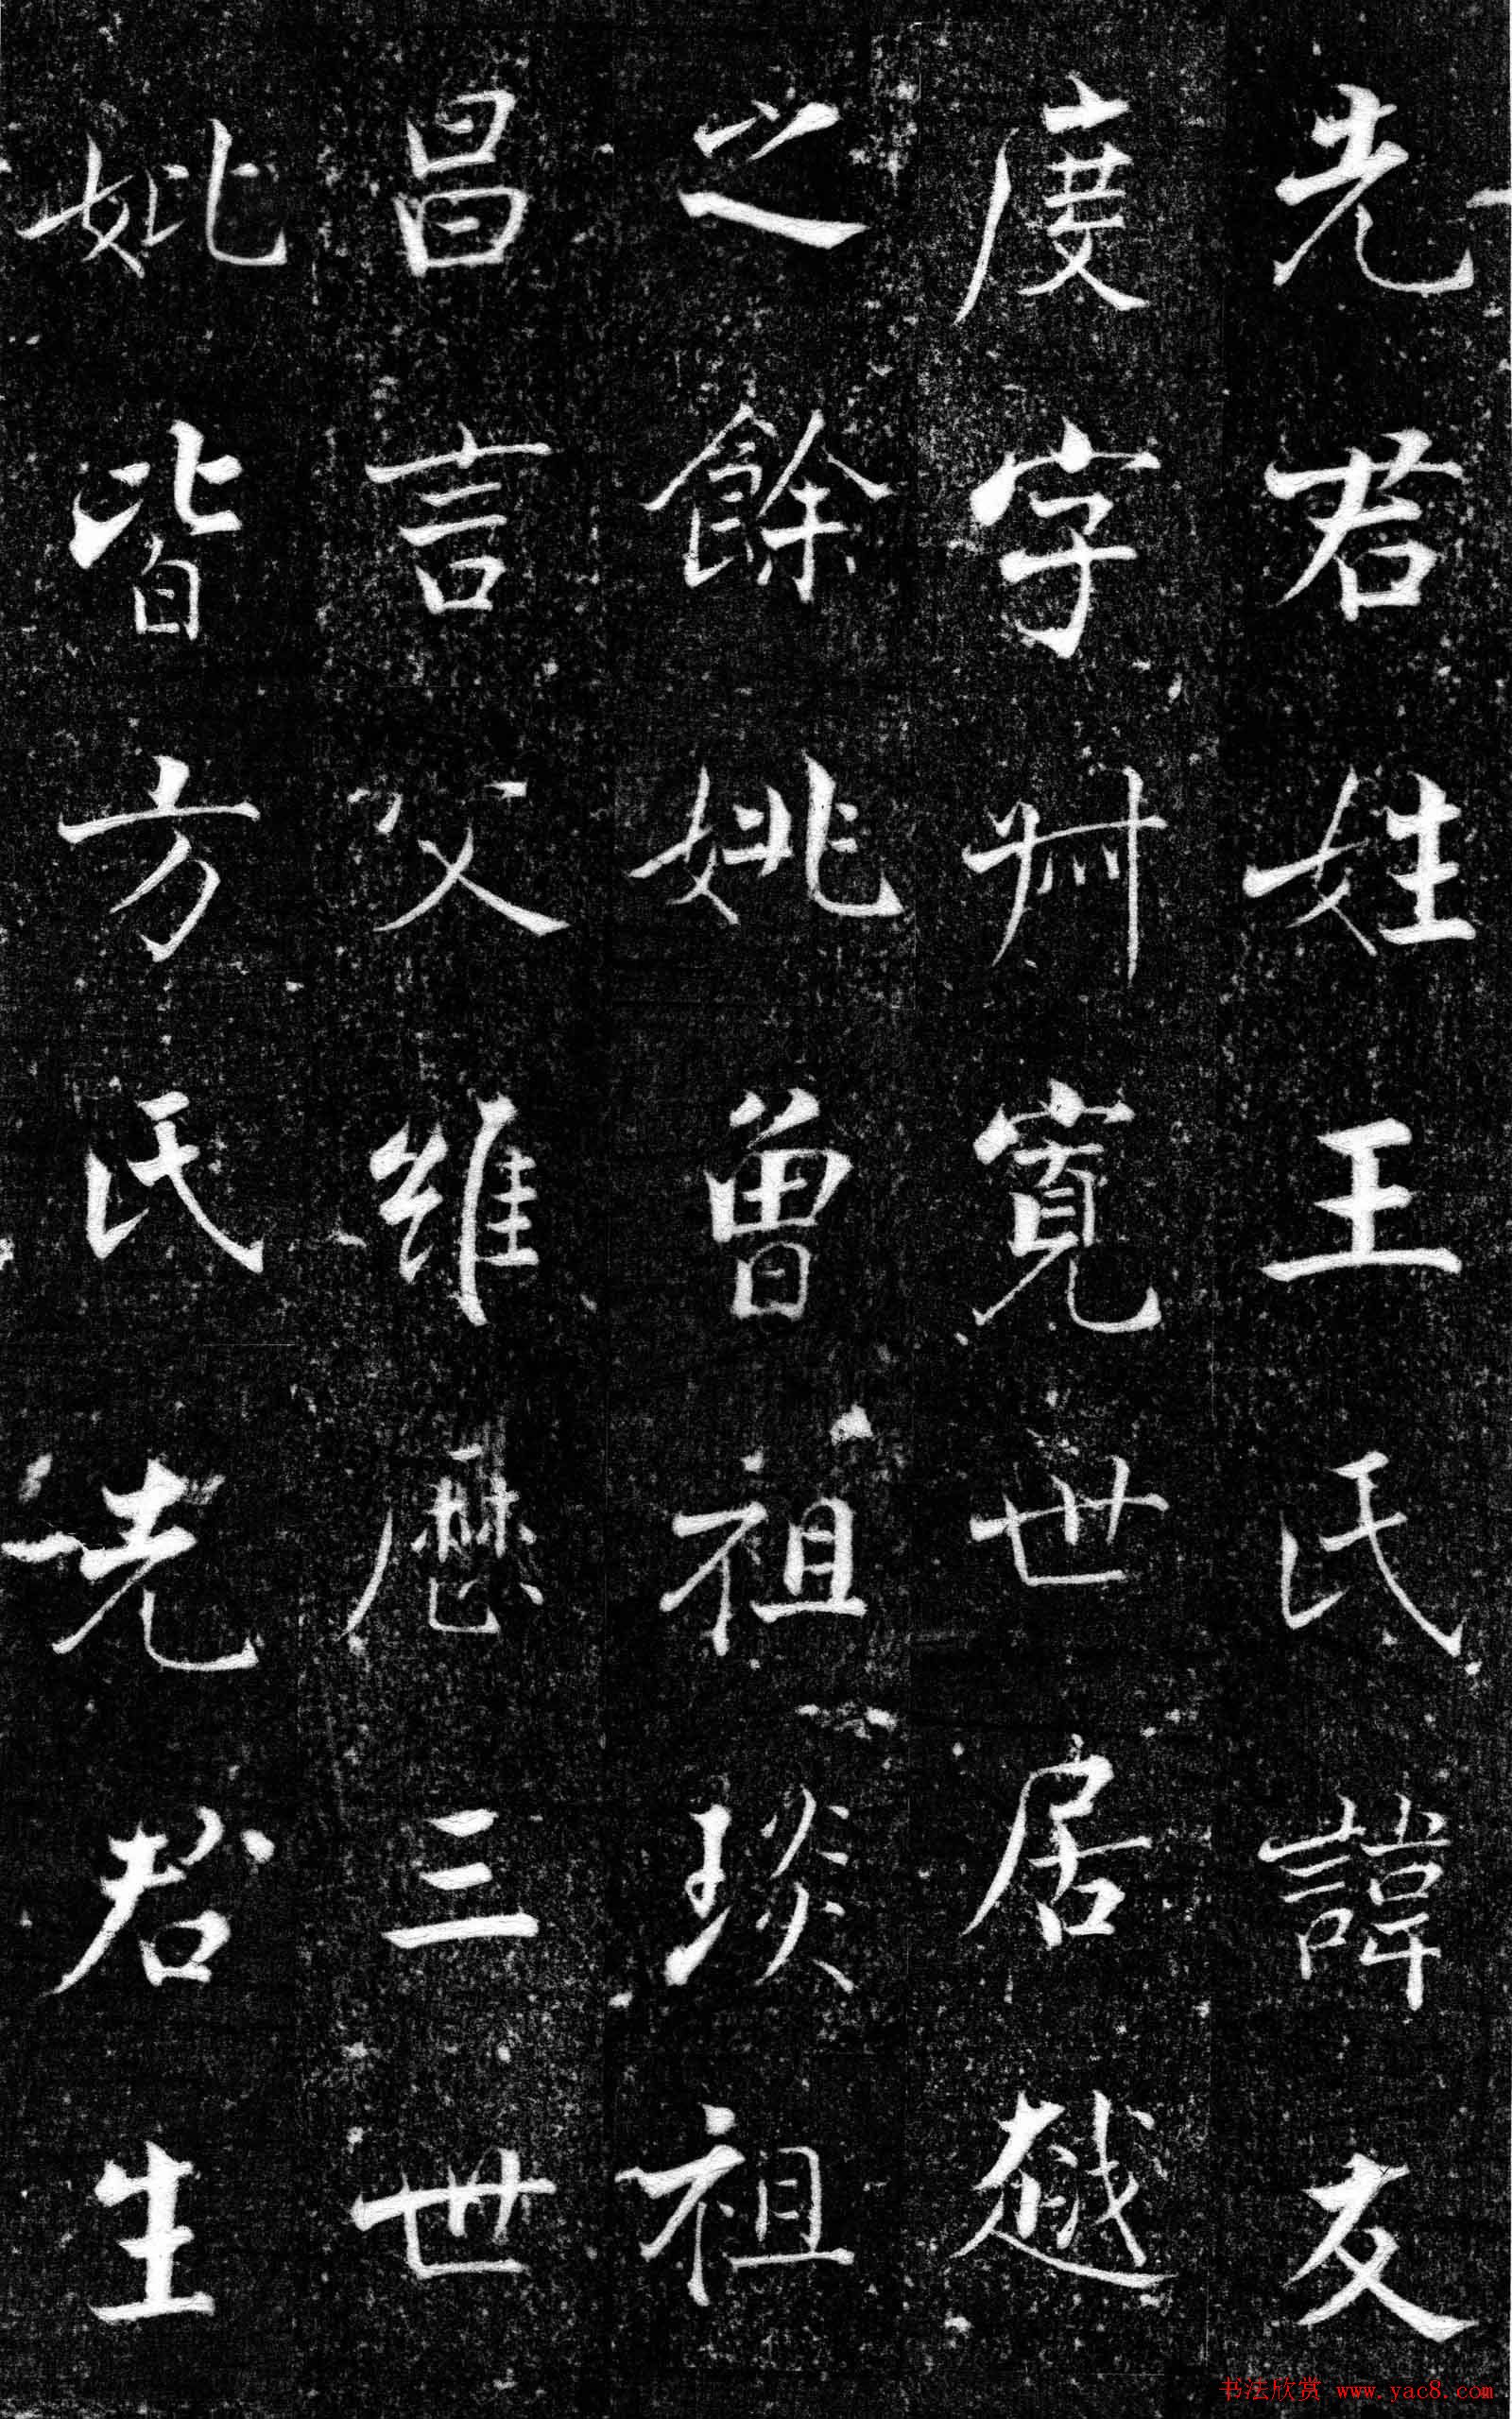 先君姓王氏諱友
度字叔寬世居越
之餘姚曾祖琰祖
昌言父維歷三世
妣皆方氏先君生
书法欣赏 www.yac8.com